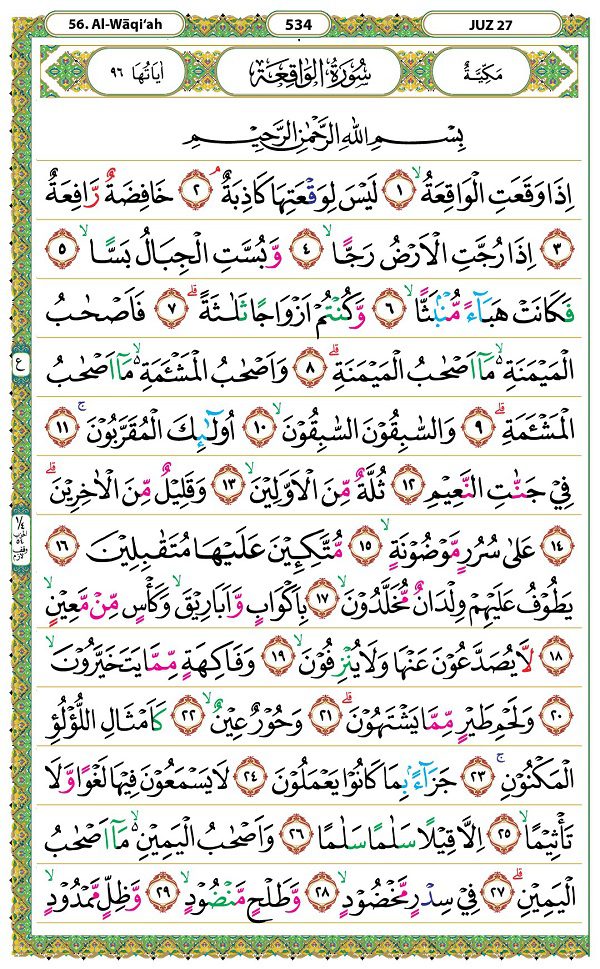 56. Al-Wāqi‘ah 534 JUZ 27
مَكِّيَّةٌ سُوْرَةُ الْوَاقِعَة اٰيَاتُهَا ٩٦
بِسْمِ اللّٰهِ الرَّحْمٰنِ الرَّحِيْمِ
اِذَا وَقَعَتِ الْوَاقِعَةُۙ ١ لَيْسَ لِوَقْعَتِهَا كَاذِبَةٌۘ ٢ خَافِضَةٌ رَّافِعَةٌ
٣ اِذَا رُجَّتِ الْاَرْضُ رَجًّاۙ ٤ وَّبُسَّتِ الْجِبَالُ بَسًّاۙ ٥
فَكَانَتْ هَبَاۤءً مُّنْۢبَثًّاۙ ٦ وَّكُنْتُمْ اَزْوَاجًا ثَلٰثَةًۗ ٧ فَاَصْحٰبُ
الْمَيْمَنَةِ ەۙ مَآ اَصْحٰبُ الْمَيْمَنَةِۗ ٨ وَاَصْحٰبُ الْمَشْـَٔمَةِ ەۙ مَآ اَصْحٰبُ
ع
الْمَشْـَٔمَةِۗ ٩ وَالسّٰبِقُوْنَ السّٰبِقُوْنَۙ ١٠ اُولٰۤىِٕكَ الْمُقَرَّبُوْنَۚ ١١
فِيْ جَنّٰتِ النَّعِيْمِ ١٢ ثُلَّةٌ مِّنَ الْاَوَّلِيْنَۙ ١٣ وَقَلِيْلٌ مِّنَ الْاٰخِرِيْنَۗ
١٤ عَلٰى سُرُرٍ مَّوْضُوْنَةٍۙ ١٥ مُّتَّكِـِٕيْنَ عَلَيْهَا مُتَقٰبِلِيْنَ ١٦
يَطُوْفُ عَلَيْهِمْ وِلْدَانٌ مُّخَلَّدُوْنَۙ ١٧ بِاَكْوَابٍ وَّاَبَارِيْقَۙ وَكَأْسٍ مِّنْ مَّعِيْنٍۙ
١٨ لَّا يُصَدَّعُوْنَ عَنْهَا وَلَا يُنْزِفُوْنَۙ ١٩ وَفَاكِهَةٍ مِّمَّا يَتَخَيَّرُوْنَۙ
٢٠ وَلَحْمِ طَيْرٍ مِّمَّا يَشْتَهُوْنَۗ ٢١ وَحُوْرٌ عِيْنٌۙ ٢٢ كَاَمْثَالِ اللُّؤْلُؤِ
الْمَكْنُوْنِۚ ٢٣ جَزَاۤءًۢ بِمَا كَانُوْا يَعْمَلُوْنَ ٢٤ لَا يَسْمَعُوْنَ فِيْهَا لَغْوًا وَّلَا
تَأْثِيْمًاۙ ٢٥ اِلَّا قِيْلًا سَلٰمًا سَلٰمًا ٢٦ وَاَصْحٰبُ الْيَمِيْنِ ەۙ مَآ اَصْحٰبُ
الْيَمِيْنِۗ ٢٧ فِيْ سِدْرٍ مَّخْضُوْدٍۙ ٢٨ وَّطَلْحٍ مَّنْضُوْدٍۙ ٢٩ وَّظِلٍّ مَّمْدُوْدٍۙ